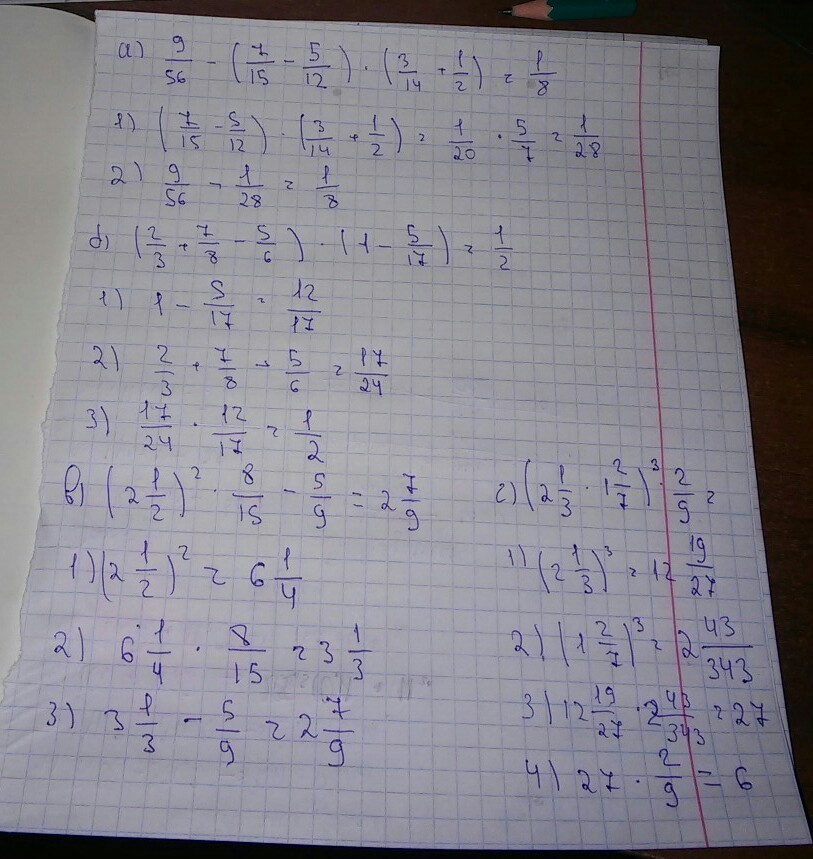 а) 9/56 - (7/15 - 5/12) · (3/14 + 1/2) = 1/8
1) (7/15 - 5/12) · (3/14 + 1/2) = 1/20 · 5/7 = 1/28
2) 9/56 - 1/28 = 1/8
б) (2/3 + 7/8 - 5/6) · (1 - 5/17) = 1/2
1) 1 - 5/17 = 12/17
2) 2/3 + 7/8 - 5/6 = 17/24
3) 17/24 · 12/17 = 1/2
в) (2 1/2)² · 8/15 - 5/9 = 2 7/9
1) (2 1/2)² = 6 1/4
2) 6 1/4 · 8/15 = 3 1/3
3) 3 1/3 - 5/9 = 2 7/9
г) (2 1/3 · 1 2/7)³ · 2/9 =
1) (2 1/3)³ = 12 19/27
2) (1 2/7)³ = 2 43/343
3) 12 19/27 · 2 43/343 = 27
4) 27 · 2/9 = 6